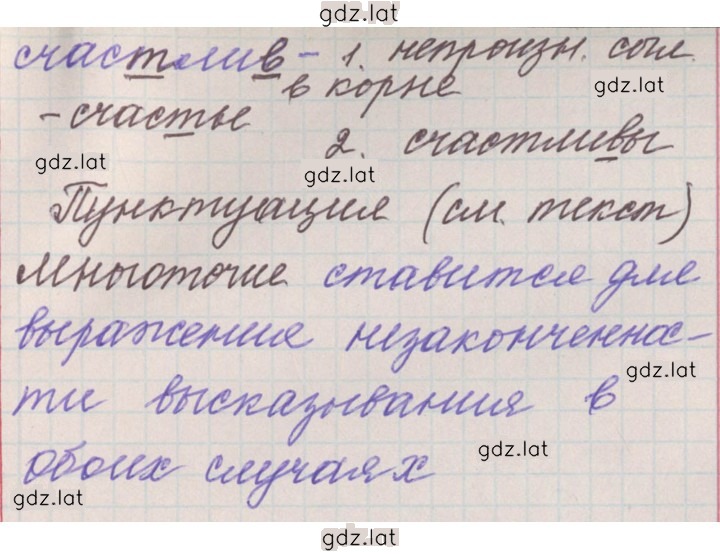 gdz.lat
счастлив - 1. непроизн. согл.
в корне
gdz.lat
- счастье
2. счастливы
gdz.lat
gdz.lat
Пунктуация (см. текст)
Многоточие ставится для
выражение незаконченнос-
gdz.lat
ти высказывания в
обоих случаях
gdz.lat
gdz.lat
gdz.lat